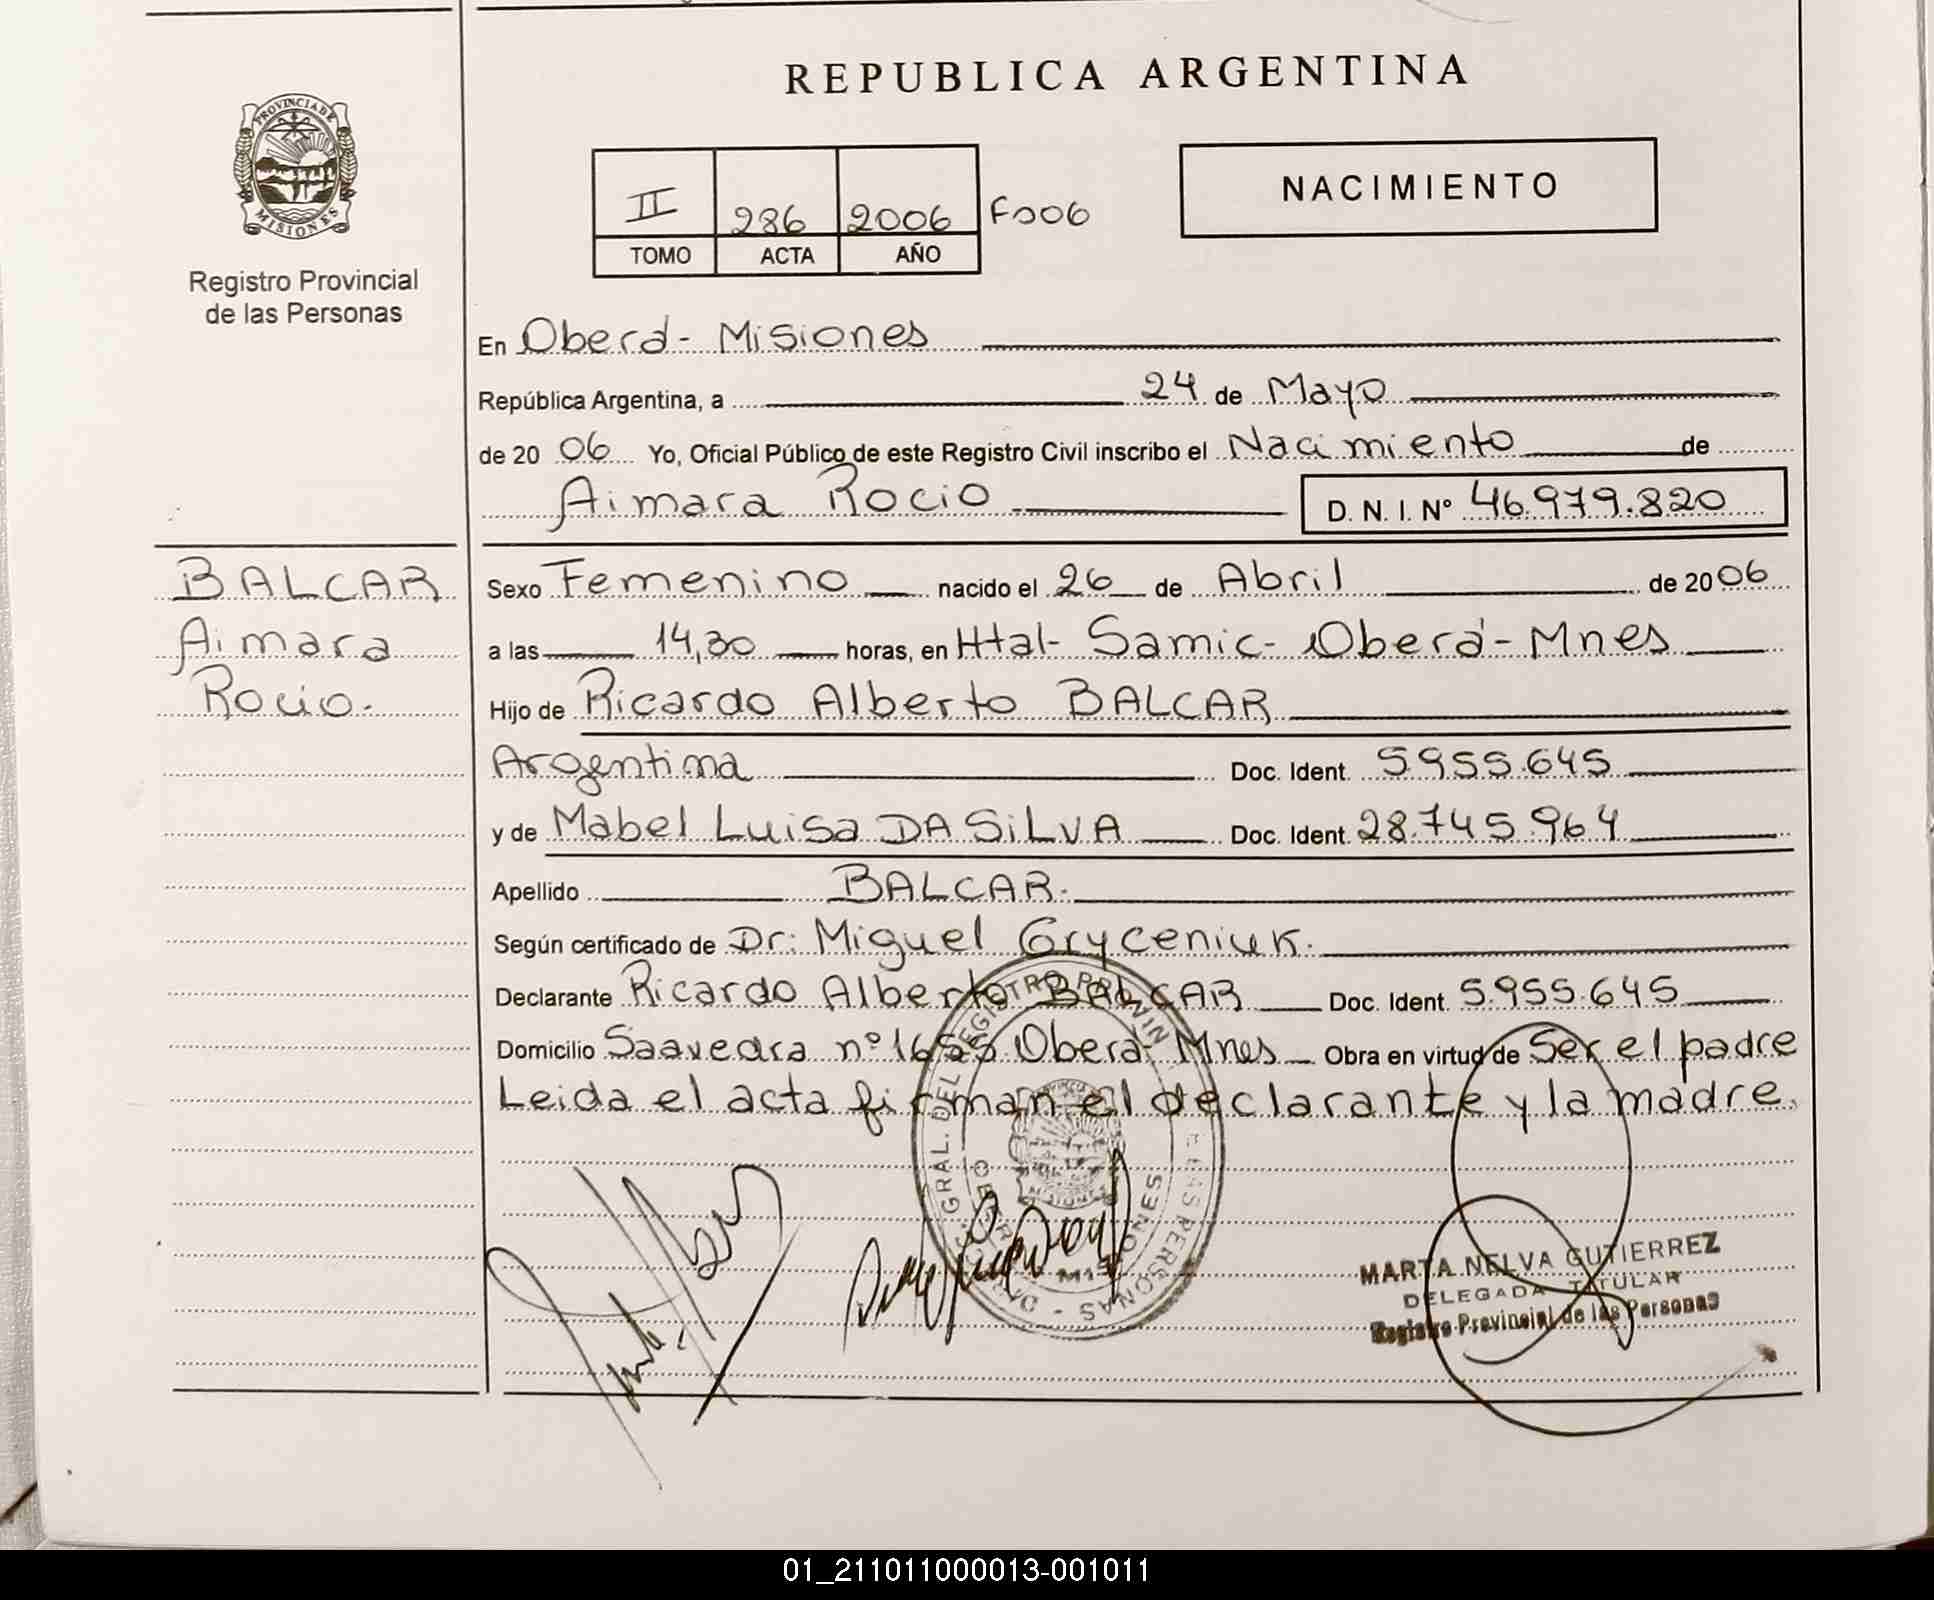 REPUBLICA ARGENTINA
PROVINCIA DE
MISIONES
Registro Provincial
de las Personas
II 286 2006 F006
TOMO ACTA AÑO
NACIMIENTO
En Oberá - Misiones
República Argentina, a 24 de Mayo
de 20 06 Yo, Oficial Público de este Registro Civil inscribo el Nacimiento de
Aimara Rocio D. N. I. Nº 46.979.820
BALCAR
Aimara
Rocio.
Sexo Femenino nacido el 26 de Abril de 20 06
a las 14,30 horas, en Htal- Samic- Oberá- Mnes
Hijo de Ricardo Alberto BALCAR
Argentina Doc. Ident. 5.955.645
y de Mabel Luisa DA SiLVA Doc. Ident. 28.745.964
Apellido BALCAR.
Según certificado de Dr: Miguel Gryceniuk.
Declarante Ricardo Alberto BALCAR Doc. Ident. 5.955.645
Domicilio Saavedra nº 1655 Oberá- Mnes Obra en virtud de Ser el padre
Leida el acta firman el declarante y la madre.
MARTA NELVA GUTIERREZ
DELEGADA TITULAR
Registro Provincial de las Personas
01_211011000013-001011